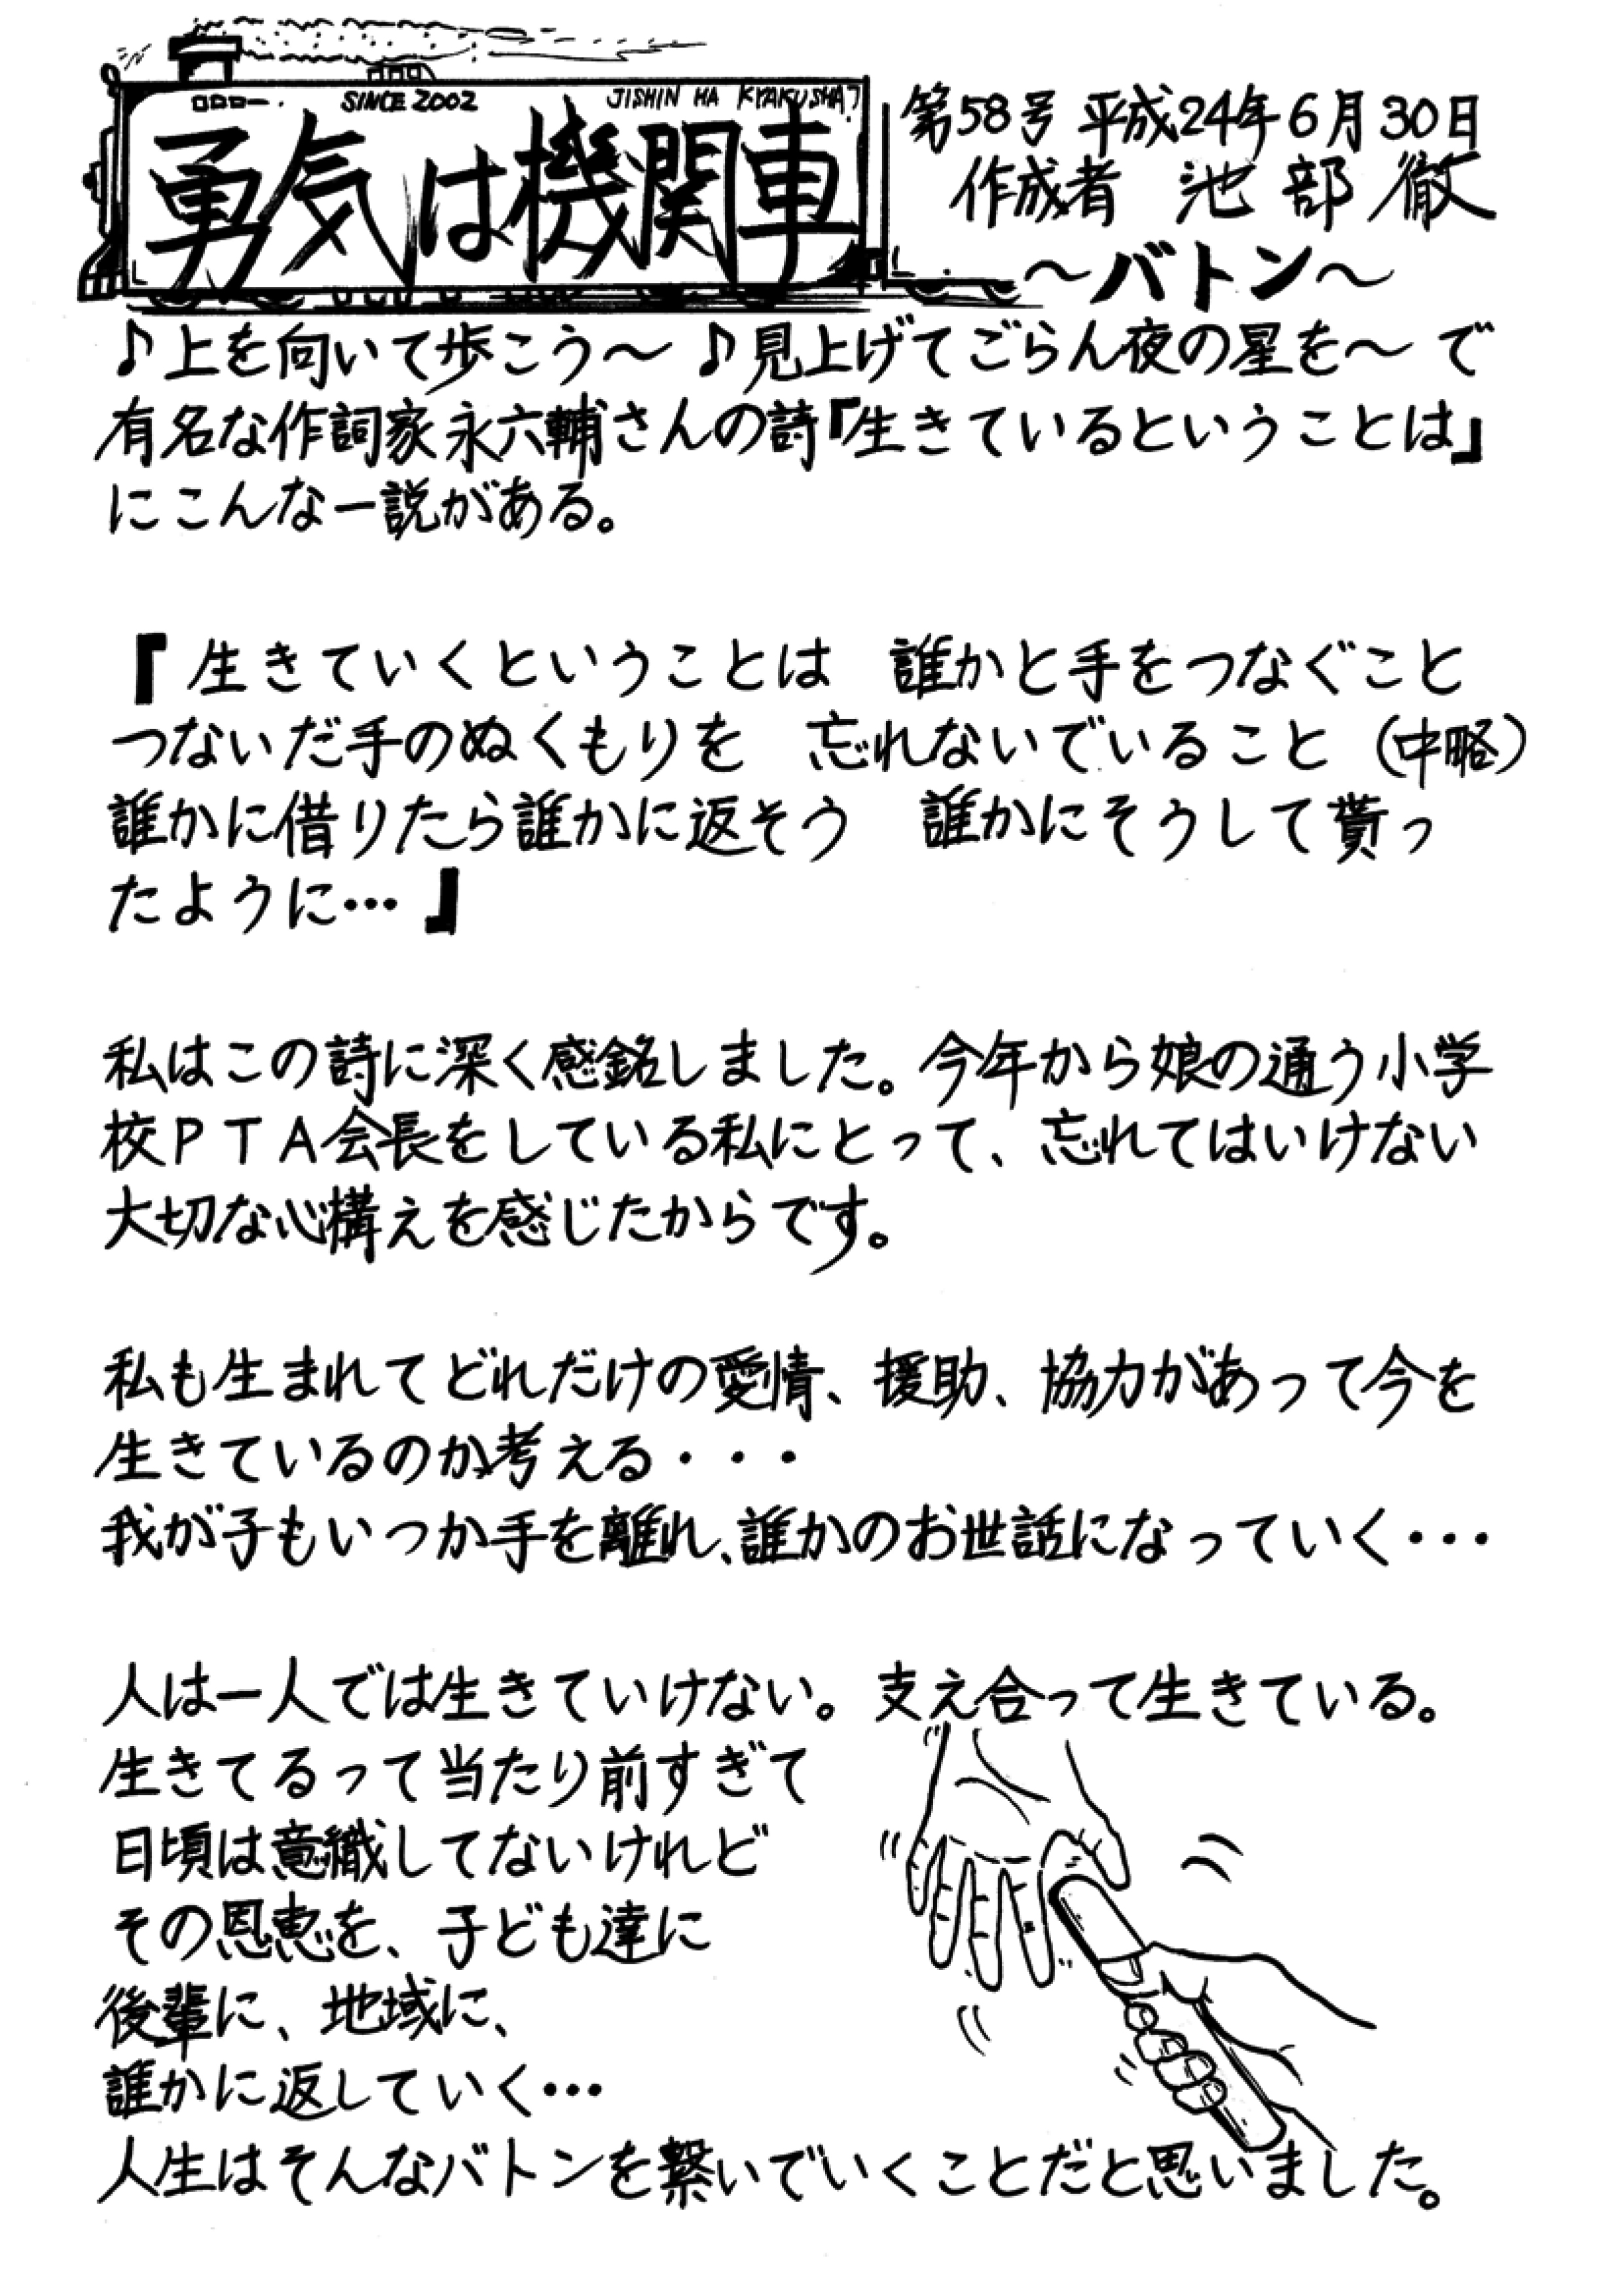 SINCE 2002
JISHIN HA KYAKUSHA?
勇気は機関車
第58号 平成24年6月30日
作成者 池部 徹
～バトン～
♪上を向いて歩こう～ ♪見上げてごらん夜の星を～ で
有名な作詞家永六輔さんの詩『生きているということは』
にこんな一説がある。
『生きていくということは 誰かと手をつなぐこと
つないだ手のぬくもりを 忘れないでいること（中略）
誰かに借りたら誰かに返そう 誰かにそうして貰っ
たように…』
私はこの詩に深く感銘しました。今年から娘の通う小学
校ＰＴＡ会長をしている私にとって、忘れてはいけない
大切な心構えを感じたからです。
私も生まれてどれだけの愛情、援助、協力があって今を
生きているのか考える・・・
我が子もいつか手を離れ、誰かのお世話になっていく・・・
人は一人では生きていけない。支え合って生きている。
生きてるって当たり前すぎて
日頃は意識してないけれど
その恩恵を、子ども達に
後輩に、地域に、
誰かに返していく…
人生はそんなバトンを繋いでいくことだと思いました。